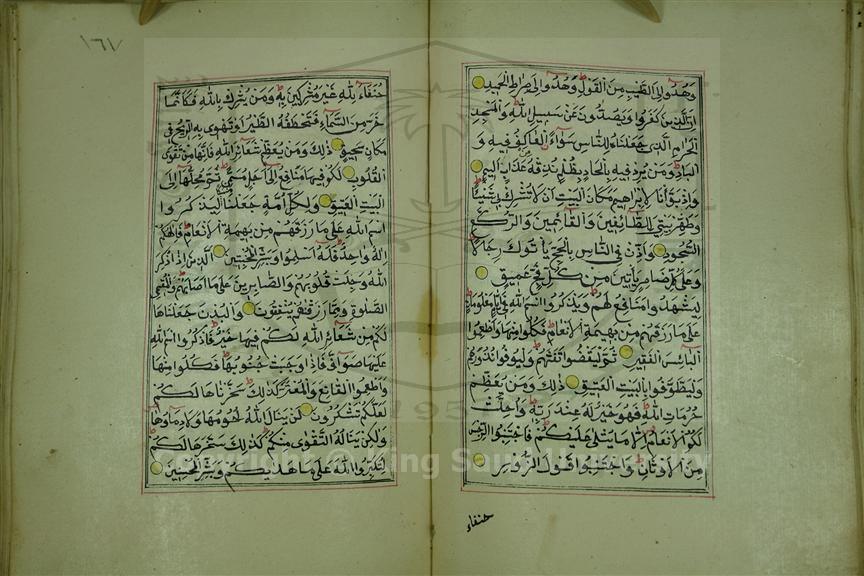 وهدوا الى الطيب من القول وهدوا الى صراط الحميد
ان الذين كفروا ويصدون عن سبيل الله والمسجد
الحرام الذى جعلناه للناس سواء العاكف فيه و
الباد ومن يرد فيه بالحاد بظلم نذقه عذاب اليم
واذ بوأنا لابراهيم مكان البيت ان لا تشرك بى شيئا
وطهر بيتى للطائفين والقائمين والركع
السجود واذن فى الناس بالحج يأتوك رجالا
وعلى كل ضامر يأتين من كل فج عميق
ليشهدوا منافع لهم ويذكروا اسم الله فى ايام معلومات
على ما رزقهم من بهيمة الانعام فكلوا منها واطعموا
البائس الفقير ثم ليقضوا تفثهم وليوفوا نذورهم
وليطوفوا بالبيت العتيق ذلك ومن يعظم
حرمات الله فهو خير له عند ربه واحلت
لكم الانعام الا ما يتلى عليكم فاجتنبوا الرجس
من الاوثان واجتنبوا قول الزور
حنفاء
١٦٧
حنفاء لله غير مشركين به ومن يشرك بالله فكانما
خر من السماء فتخطفه الطير او تهوى به الريح فى
مكان سحيق ذلك ومن يعظم شعائر الله فانها من تقوى
القلوب لكم فيها منافع الى اجل مسمى ثم محلها الى
البيت العتيق ولكل امة جعلنا منسكا ليذكروا
اسم الله على ما رزقهم من بهيمة الانعام فالهكم
اله واحد فله اسلموا وبشر المخبتين الذين اذا ذكر
الله وجلت قلوبهم والصابرين على ما اصابهم والمقيمى
الصلوة ومما رزقناهم ينفقون والبدن جعلناها
لكم من شعائر الله لكم فيها خير فاذكروا اسم الله
عليها صواف فاذا وجبت جنوبها فكلوا منها
واطعموا القانع والمعتر كذلك سخرناها لكم
لعلكم تشكرون لن ينال الله لحومها ولا دماؤها
ولكن يناله التقوى منكم كذلك سخرها لكم
لتكبروا الله على ما هديكم وبشر المحسنين
1957
Copyright © King Saud University